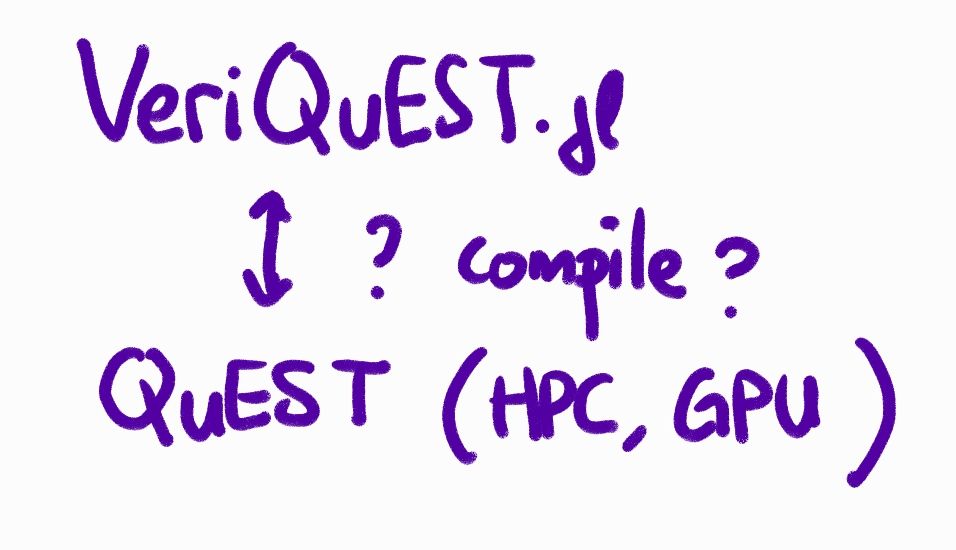 VeriQuEST.jl
? compile ?
QuEST (HPC, GPU)